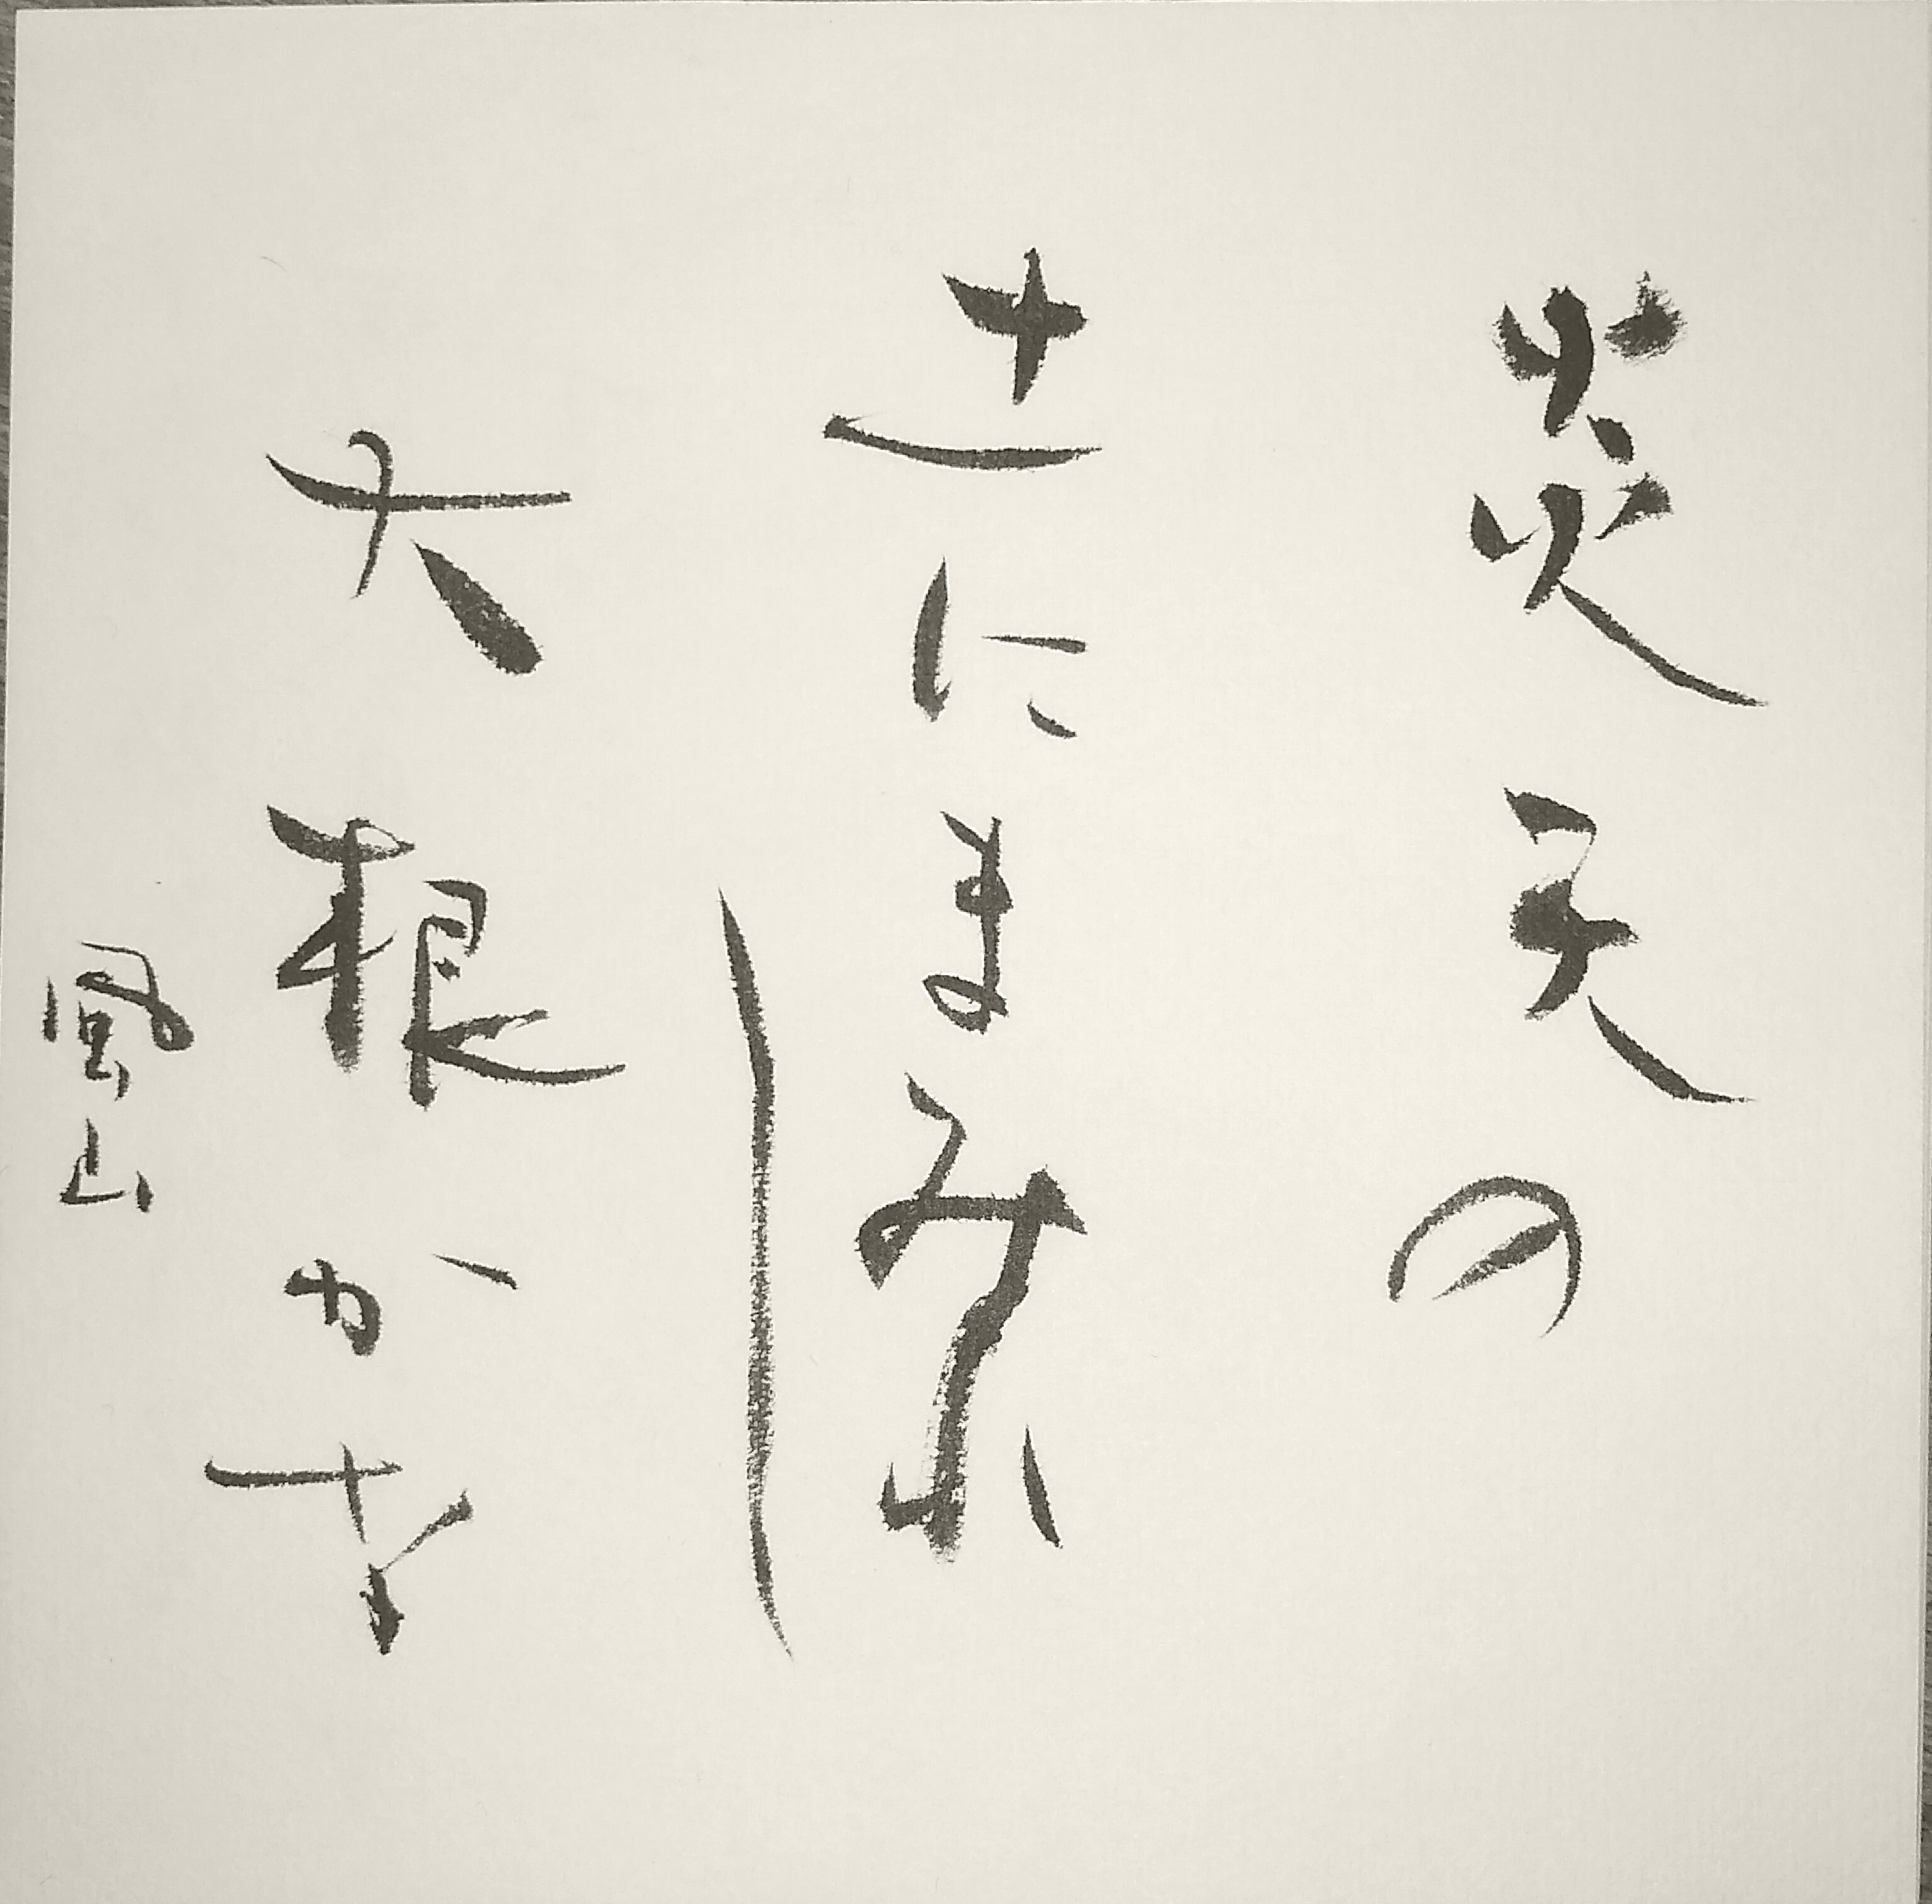 炎天の
土にまみれし
大根かな
雲山